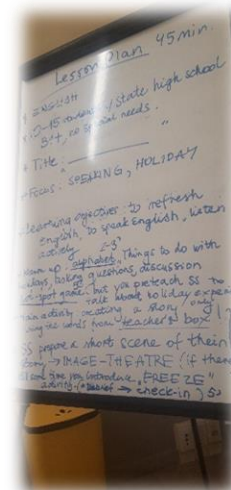 Lesson Plan 45 min.
ENGLISH
15 state high school
no special needs.
Title:
Focus: SPEAKING, HOLIDAY
Learning objectives to refresh
English, to speak English, listen
actively 2-3'
up: alphabet, Things to do with
days, asking questions, discussion
game but you preteach SS to
talk about holiday
activity creating a story only
using the words from teacher's box
SS prepare a short scene of their
story → IMAGE-THEATRE (if there
time you introduce "FREEZE"
→ check-in) 5'